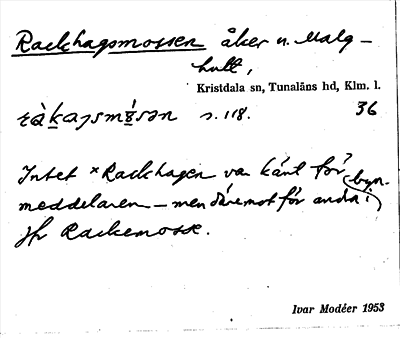 Rackhagsmossen åker u. Malg-
hult,
Kristdala sn, Tunaläns hd, Klm. l.
s. 118. 36
Intet ×Rackhagen var känt för
meddelaren – men däremot för andra i byn.
Jfr Rackemosse.
Ivar Modéer 1953